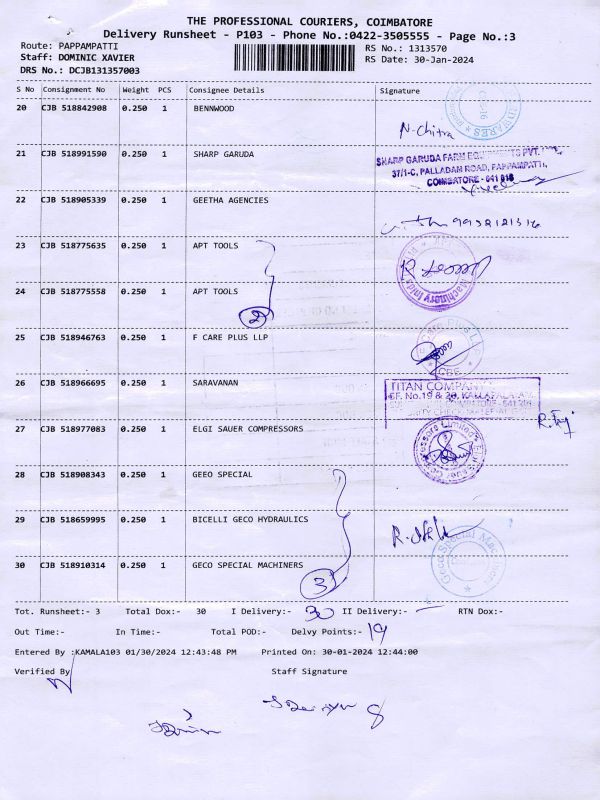 THE PROFESSIONAL COURIERS, COIMBATORE
Delivery Runsheet - P103 - Phone No.:0422-3505555 - Page No.:3
Route: PAPPAMPATTI
RS No.: 1313570
Staff: DOMINIC XAVIER
RS Date: 30-Jan-2024
DRS No.: DCJB131357003
S No Consignment No Weight PCS Consignee Details Signature
20 CJB 518842908 0.250 1 BENNWOOD
N-Chitra
21 CJB 518991590 0.250 1 SHARP GARUDA
SHARP GARUDA FARM EQUIPMENTS PVT.
37/1-C, PALLADAM ROAD, PAPPAMPATTI,
COIMBATORE - 641 016
22 CJB 518905339 0.250 1 GEETHA AGENCIES
23 CJB 518775635 0.250 1 APT TOOLS
24 CJB 518775558 0.250 1 APT TOOLS
2
25 CJB 518946763 0.250 1 F CARE PLUS LLP
CBE
26 CJB 518966695 0.250 1 SARAVANAN
TITAN COMPANY
27 CJB 518977083 0.250 1 ELGI SAUER COMPRESSORS
28 CJB 518908343 0.250 1 GEEO SPECIAL
29 CJB 518659995 0.250 1 BICELLI GECO HYDRAULICS
30 CJB 518910314 0.250 1 GECO SPECIAL MACHINERS
3
Tot. Runsheet:- 3 Total Dox:- 30 I Delivery:- 30 II Delivery:- — RTN Dox:-
Out Time:- In Time:- Total POD:- Delvy Points:- 19
Entered By :KAMALA103 01/30/2024 12:43:48 PM Printed On: 30-01-2024 12:44:00
Verified By Staff Signature